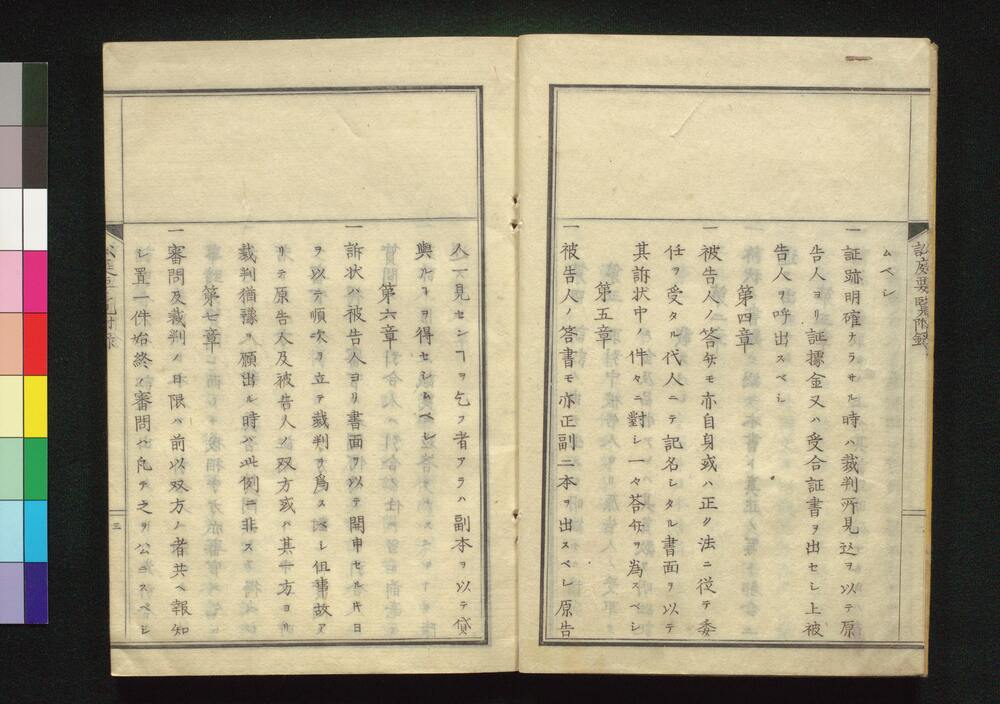 訟庭要覧附録
ムベシ
一証跡明確ナラサル時ハ裁判所見込ヲ以テ原
告人ヨリ証據金又ハ受合証書ヲ出セシ上被
告人ヲ呼出スベシ
第四章
一被告人ノ答ヘモ亦自身或ハ正ク法ニ従テ委
任ヲ受タル代人ニテ記名シタル書面ヲ以テ
其訴状中ノ件々ニ對シ一々答ヘヲ為スベシ
第五章
一被告人ノ答書モ亦正副二本ヲ出スベシ原告
人一見センヿヲ乞フ者アラハ副本ヲ以テ貸
與ルヿヲ得セシムベシ
第六章
一訴状ハ被告人ヨリ書面ヲ以テ開申セル片日
ヲ以テ順次ヲ立テ裁判ヲ為スベシ但事故ア
リテ原告人及被告人ノ双方或ハ其一方ヨリ
裁判猶豫ヲ願出ル時ハ此例ニ非ス
第七章
一審問及裁判ノ日限ハ前以双方ノ者共ヘ報知
シ置一件始終ス審問ハ凡テ之ヲ公ニスベシ
三